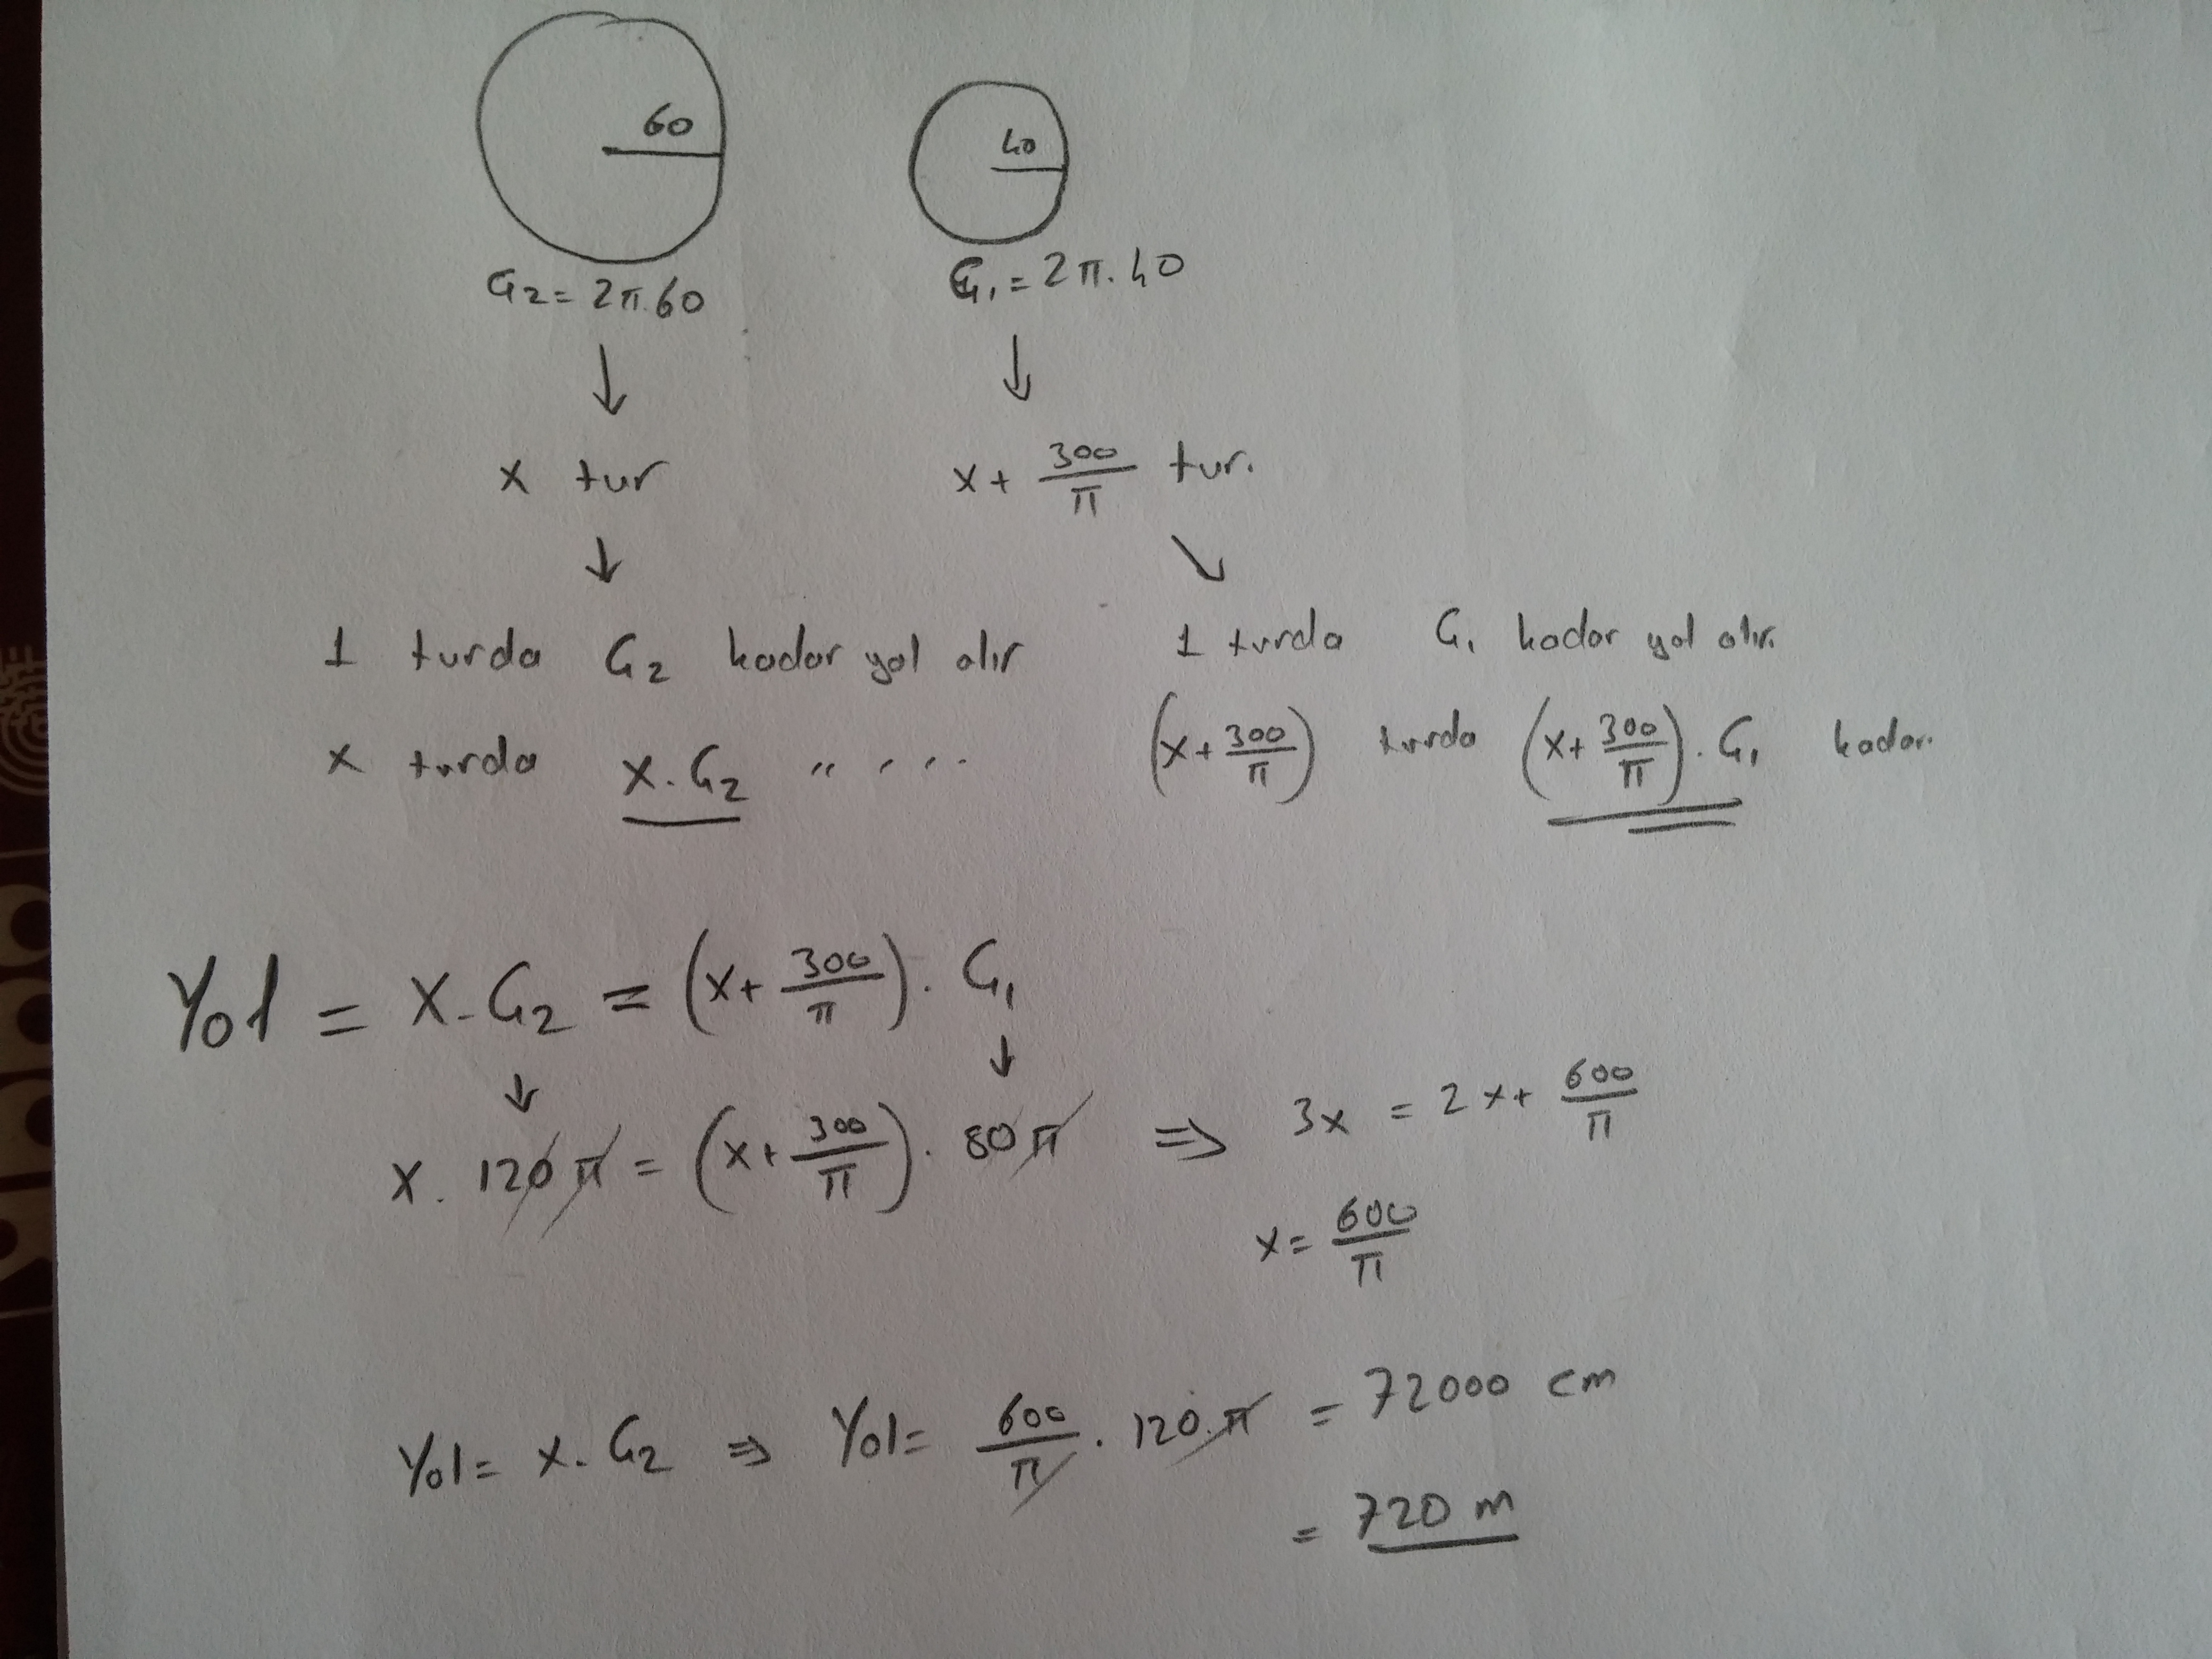 60
40
Ç₂ = 2π.60
Ç₁ = 2π.40
x tur
x + 300/π tur.
1 turda Ç₂ kadar yol alır
1 turda Ç₁ kadar yol alır.
x turda x.Ç₂ " " " "
(x + 300/π) turda (x + 300/π).Ç₁ kadar.
Yol = x.Ç₂ = (x + 300/π).Ç₁
x.120π = (x + 300/π).80π ⇒ 3x = 2x + 600/π
x = 600/π
Yol = x.Ç₂ ⇒ Yol = 600/π.120.π = 72000 cm
= 720 m